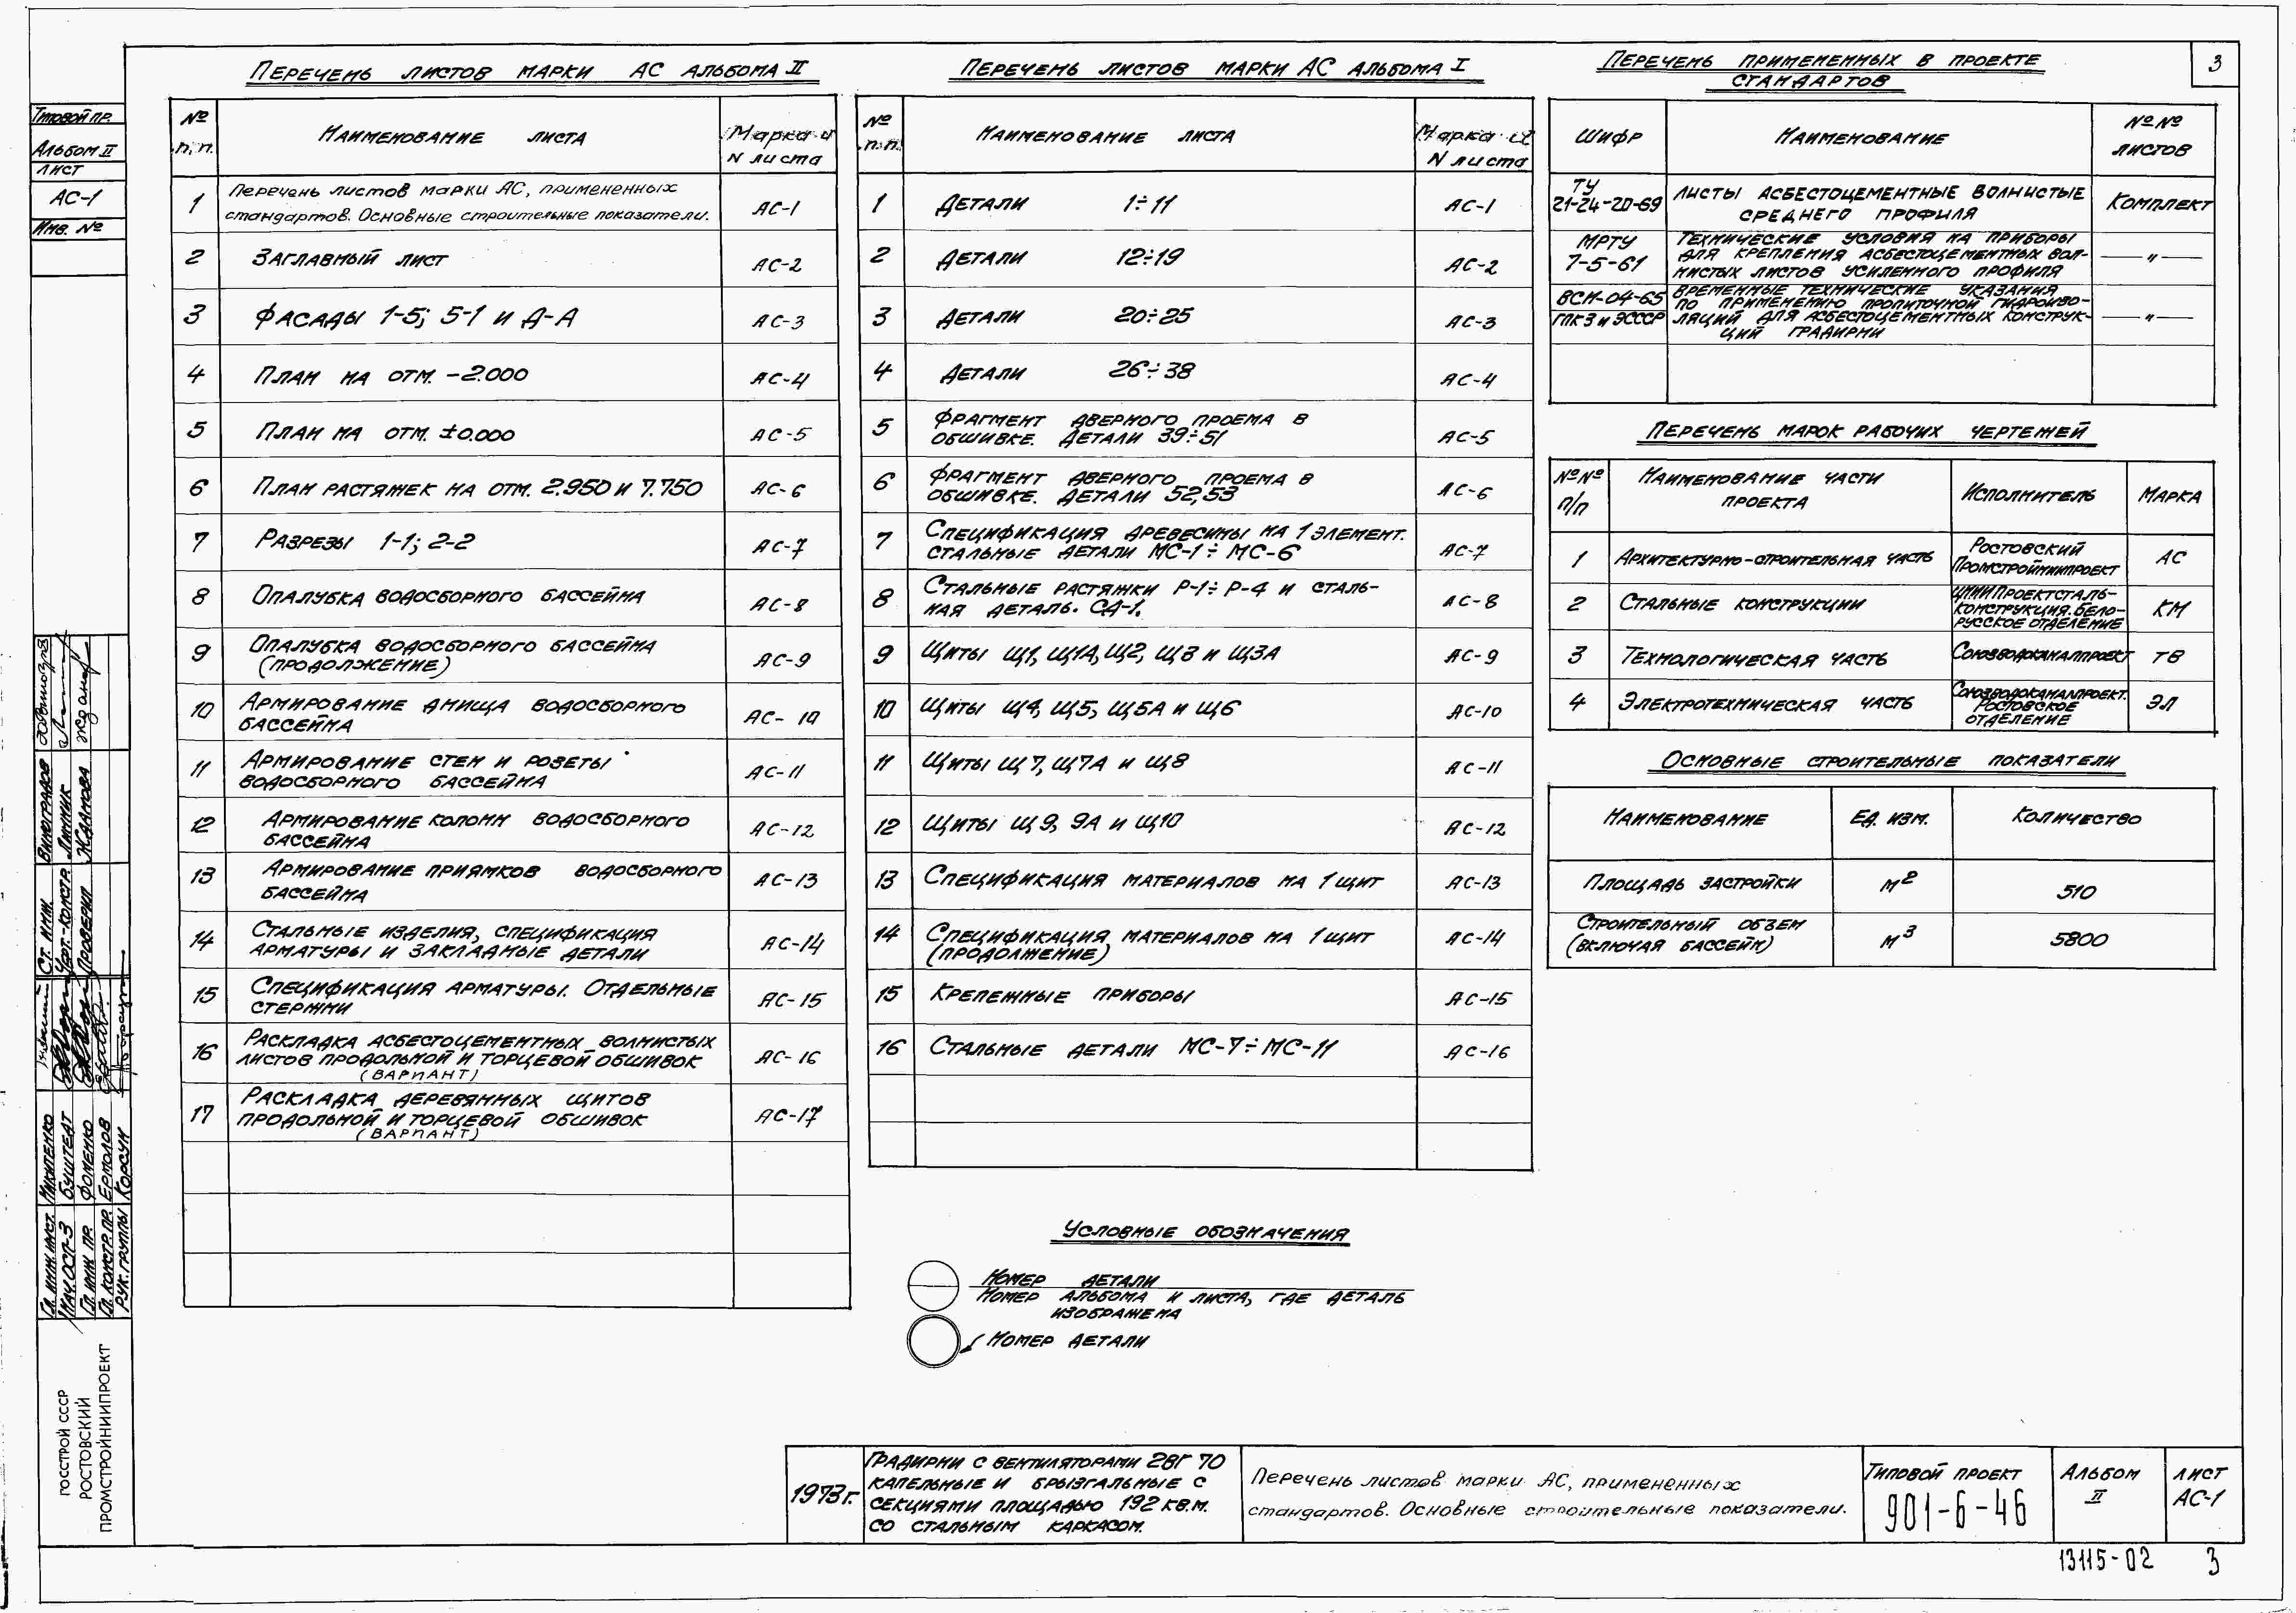 3
Типовой пр.
Альбом II
лист
АС-1
Инв. №
Перечень листов марки АС альбома II
№ п.п. Наименование листа Марка и N листа
1 Перечень листов марки АС, примененных
стандартов. Основные строительные показатели. АС-1
2 Заглавный лист АС-2
3 Фасады 1-5; 5-1 и Д-А АС-3
4 План на отм. -2.000 АС-4
5 План на отм. ±0.000 АС-5
6 План растяжек на отм. 2.950 и 7.750 АС-6
7 Разрезы 1-1; 2-2 АС-7
8 Опалубка водосборного бассейна АС-8
9 Опалубка водосборного бассейна
(продолжение) АС-9
10 Армирование днища водосборного
бассейна АС-10
11 Армирование стен и розеты
водосборного бассейна АС-11
12 Армирование колонн водосборного
бассейна АС-12
13 Армирование приямков водосборного
бассейна АС-13
14 Стальные изделия, спецификация
арматуры и закладные детали АС-14
15 Спецификация арматуры. Отдельные
стержни АС-15
16 Раскладка асбестоцементных волнистых
листов продольной и торцевой обшивок
(вариант) АС-16
17 Раскладка деревянных щитов
продольной и торцевой обшивок
(вариант) АС-17
Перечень листов марки АС альбома I
№ п.п. Наименование листа Марка и N листа
1 Детали 1÷11 АС-1
2 Детали 12÷19 АС-2
3 Детали 20÷25 АС-3
4 Детали 26÷38 АС-4
5 Фрагмент дверного проема в
обшивке. Детали 39÷51 АС-5
6 Фрагмент дверного проема в
обшивке. Детали 52,53 АС-6
7 Спецификация древесины на 1 элемент.
Стальные детали МС-1÷МС-6 АС-7
8 Стальные растяжки Р-1÷Р-4 и сталь-
ная деталь. СД-1. АС-8
9 Щиты Щ1, Щ1А, Щ2, Щ3 и Щ3А АС-9
10 Щиты Щ4, Щ5, Щ5А и Щ6 АС-10
11 Щиты Щ7, Щ7А и Щ8 АС-11
12 Щиты Щ9, 9А и Щ10 АС-12
13 Спецификация материалов на 1 щит АС-13
14 Спецификация материалов на 1 щит
(продолжение) АС-14
15 Крепежные приборы АС-15
16 Стальные детали МС-7÷МС-11 АС-16
Условные обозначения
Номер детали
Номер альбома и листа, где деталь
изображена
Номер детали
Перечень примененных в проекте
стандартов
Шифр Наименование №№ листов
ТУ
21-24-20-69 Листы асбестоцементные волнистые
среднего профиля Комплект
МРТУ
7-5-61 Технические условия на приборы
для крепления асбестоцементных вол-
нистых листов усиленного профиля —"—
ВСН-04-65
ГПКЭ и ЭСССР Временные технические указания
по применению пропиточной гидроизо-
ляций для асбестоцементных конструк-
ций градирни —"—
Перечень марок рабочих чертежей
№№ п/п Наименование части проекта Исполнитель Марка
1 Архитектурно-строительная часть Ростовский
Промстройниипроект АС
2 Стальные конструкции ЦНИИПроектсталь-
конструкция. Бело-
русское отделение КМ
3 Технологическая часть Союзводоканалпроект ТВ
4 Электротехническая часть Союзводоканалпроект.
Ростовское
отделение ЭЛ
Основные строительные показатели
Наименование Ед. изм. Количество
Площадь застройки м2 510
Строительный объем
(включая бассейн) м3 5800
Гл. инж. инст. Никитенко Ст. инж. Виноградов
Нач. ОСП-3 Буштедт Черт.-констр. Линник
Гл. инж. пр. Фоменко Проверил Жданова
Гл. констр. пр. Ермолов
Рук. группы Корсун
ГОССТРОЙ СССР
РОСТОВСКИЙ
ПРОМСТРОЙНИИПРОЕКТ
1973г.
Градирни с вентиляторами 2ВГ 70
капельные и брызгальные с
секциями площадью 192 кв.м.
со стальным каркасом.
Перечень листов марки АС, примененных
стандартов. Основные строительные показатели.
Типовой проект
901-6-46
Альбом
II
лист
АС-1
13115-02 3